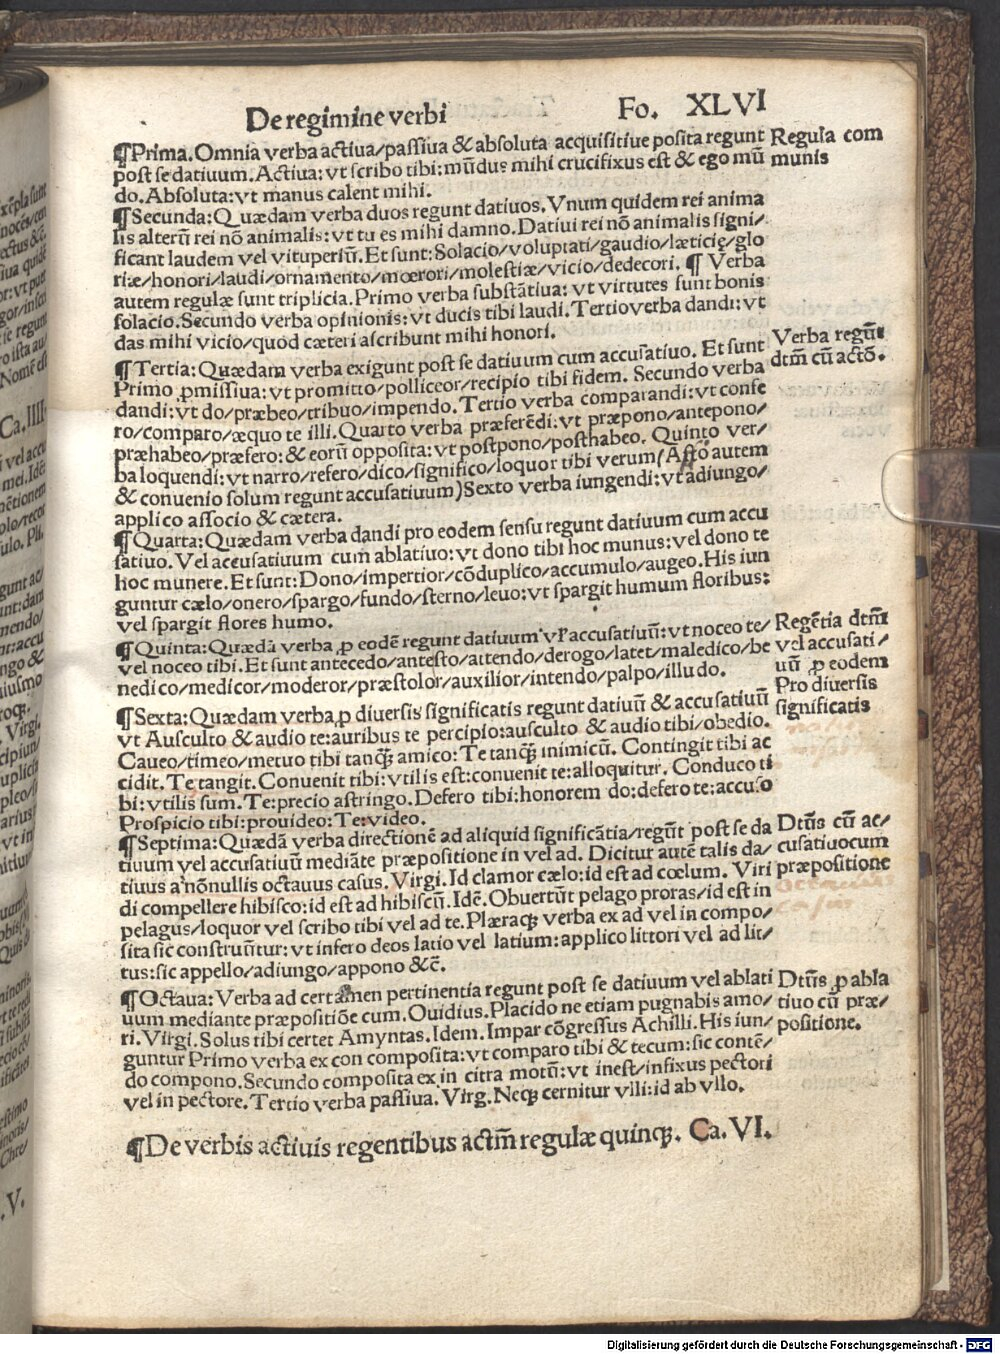 De regimine verbi Fo. XLVI
¶Prima. Omnia verba actiua/passiua & absoluta acquisitiue posita regunt
post se datiuum. Actiua: vt scribo tibi: mũdus mihi crucifixus est & ego mũ
do. Absoluta: vt manus calent mihi.
Regula com
munis
¶Secunda: Quædam verba duos regunt datiuos. Vnum quidem rei anima
lis alterũ rei nõ animalis: vt tu es mihi damno. Datiui rei nõ animalis signi/
ficant laudem vel vituperiũ. Et sunt: Solacio/voluptati/gaudio/læticię/glo
riæ/honori/laudi/ornamento/mœrori/molestiæ/vicio/dedecori. ¶ Verba
autem regulæ sunt triplicia. Primo verba substãtiua: vt virtutes sunt bonis
solacio. Secundo verba opinionis: vt ducis tibi laudi. Tertio verba dandi: vt
das mihi vicio/quod cæteri ascribunt mihi honori.
¶Tertia: Quædam verba exigunt post se datiuum cum accusatiuo. Et sunt
Primo ꝓmissiua: vt promitto/polliceor/recipio tibi fidem. Secundo verba
dandi: vt do/præbeo/tribuo/impendo. Tertio verba comparandi: vt confe
ro/comparo/æquo te illi. Quarto verba præferẽdi: vt præpono/antepono/
præhabeo/præfero: & eorũ opposita: vt postpono/posthabeo. Quinto ver/
ba loquendi: vt narro/refero/dico/significo/loquor tibi verum (Affõ autem
& conuenio solum regunt accusatiuum) Sexto verba iungendi: vt adiungo/
applico associo & cætera.
Verba regũt
dtm̃ cũ actõ.
¶Quarta: Quædam verba dandi pro eodem sensu regunt datiuum cum accu
satiuo. Vel accusatiuum cum ablatiuo: vt dono tibi hoc munus: vel dono te
hoc munere. Et sunt: Dono/impertior/cõduplico/accumulo/augeo. His iun
guntur cælo/onero/spargo/fundo/sterno/leuo: vt spargit humum floribus:
vel spargit flores humo.
¶Quinta: Quædã verba ꝓ eodẽ regunt datiuum vl̃ accusatiuũ: vt noceo te/
vel noceo tibi. Et sunt antecedo/antesto/attendo/derogo/latet/maledico/be
nedico/medicor/moderor/præstolor/auxilior/intendo/palpo/illudo.
Regẽtia dtm̃
vel accusati/
uũ ꝓ eodem
Pro diuersis
significatis
¶Sexta: Quædam verba ꝓ diuersis significatis regunt datiuũ & accusatiuũ
vt Ausculto & audio te: auribus te percipio: ausculto & audio tibi/obedio.
Caueo/timeo/metuo tibi tanꝗ̃ amico: Te tanꝗ̃ inimicũ. Contingit tibi ac
cidit. Te tangit. Conuenit tibi: vtilis est: conuenit te: alloquitur. Conduco ti
bi: vtilis sum. Te: precio astringo. Defero tibi: honorem do: defero te: accuso
Prospicio tibi: prouideo: Te: video.
¶Septima: Quædã verba directionẽ ad aliquid significãtia/regũt post se da
tiuum vel accusatiuũ mediãte præpositione in vel ad. Dicitur autẽ talis da/
tiuus a nõnullis octauus casus. Virgi. Id clamor cælo: id est ad cœlum. Viri
di compellere hibisco: id est ad hibiscũ. Idẽ. Obuertũt pelago proras/id est in
pelagus/loquor vel scribo tibi vel ad te. Plæraqꝫ verba ex ad vel in compo/
sita sic construũtur: vt infero deos latio vel latium: applico littori vel ad lit/
tus: sic appello/adiungo/appono &c̃.
Dtũs cũ ac/
cusatiuocum
præpositione
octauus
casus
¶Octaua: Verba ad certamen pertinentia regunt post se datiuum vel ablati
uum mediante præpositiõe cum. Ouidius. Placido ne etiam pugnabis amo/
ri. Virgi. Solus tibi certet Amyntas. Idem. Impar cõgressus Achilli. His iun/
guntur Primo verba ex con composita: vt comparo tibi & tecum: sic contẽ/
do compono. Secundo composita ex in citra motũ: vt inest/infixus pectori
vel in pectore. Tertio verba passiua. Virg. Neqꝫ cernitur vlli: id ab vllo.
Dtũs ꝓ abla
tiuo cũ præ/
positione.
¶De verbis actiuis regentibus actm̃ regulæ quinqꝫ. Ca. VI.
Ca. IIII.
. V.
Digitalisierung gefördert durch die Deutsche Forschungsgemeinschaft - DFG